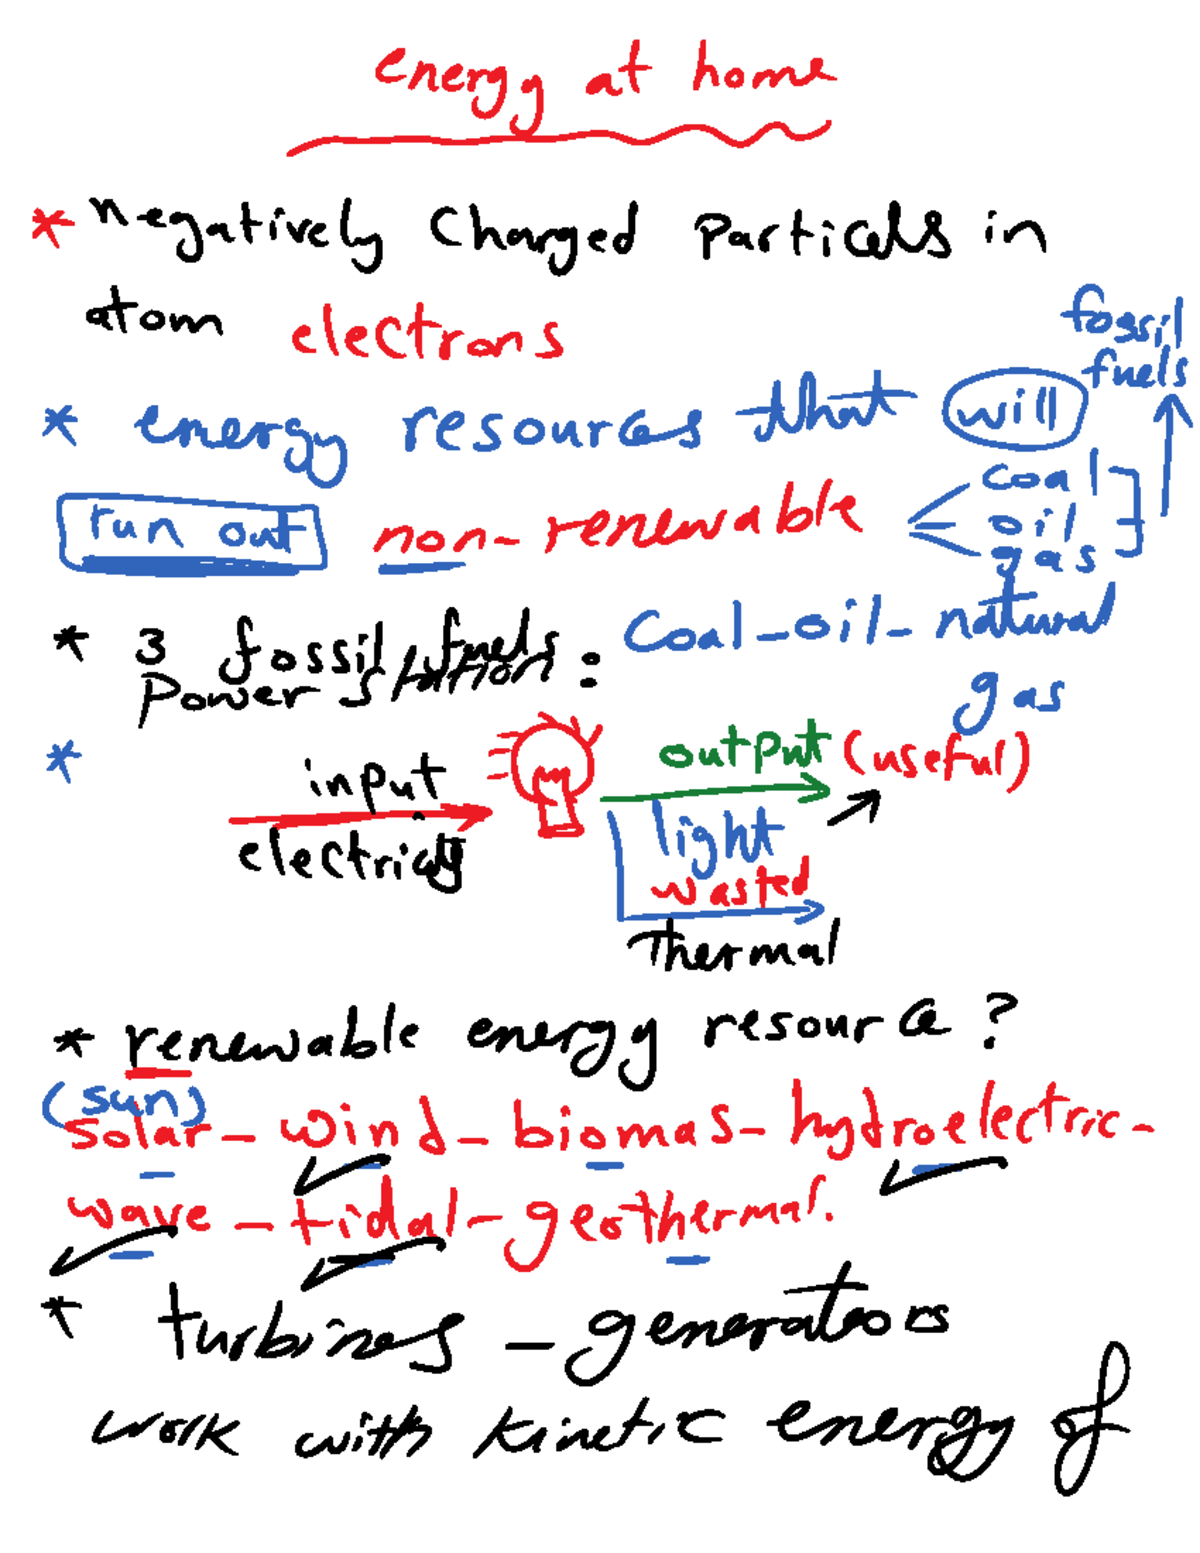 energy at home
* negatively charged particals in
atom electrons
fossil
fuels
* energy resources that will
run out non-renewable
coal
oil
gas
* 3 fossil fuels : coal-oil-natural
power station
gas
*
input
electricity
output (useful)
light
wasted
Thermal
* renewable energy resource ?
(sun)
solar - wind - biomas - hydroelectric -
wave - tidal - geothermal.
* turbines - generators
work with kinetic energy of